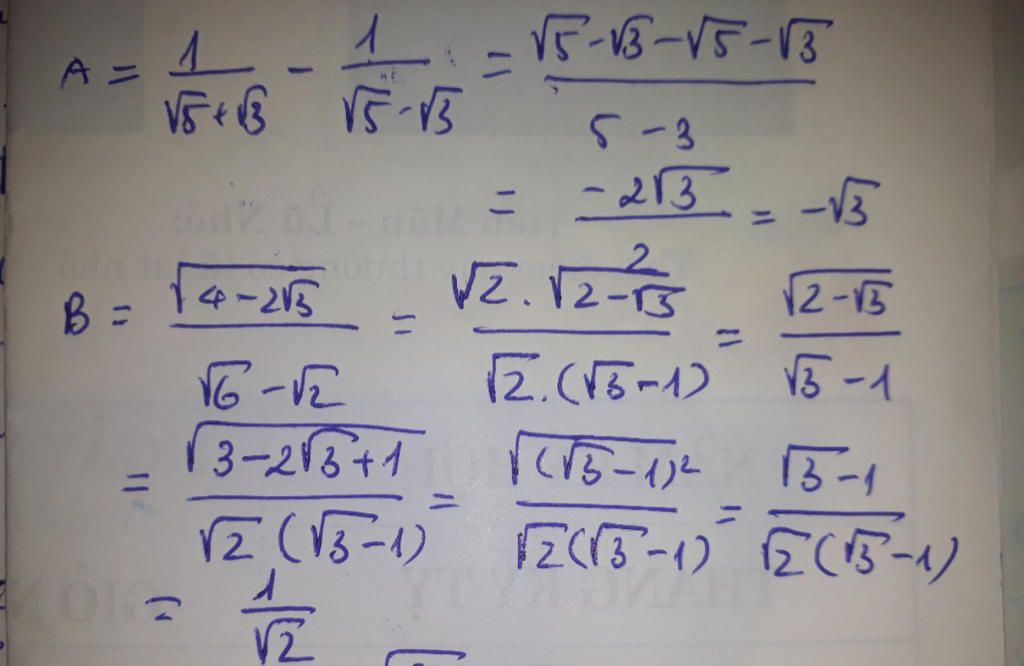 A = 1/(√5+√3) - 1/(√5-√3) = (√5-√3-√5-√3)/(5-3)
= -2√3/2 = -√3
B = √(4-2√3)/(√6-√2) = √2.√(2-√3)/(√2.(√3-1)) = √(2-√3)/(√3-1)
= √(3-2√3+1)/(√2(√3-1)) = √((√3-1)²)/(√2(√3-1)) = (√3-1)/(√2(√3-1))
= 1/√2